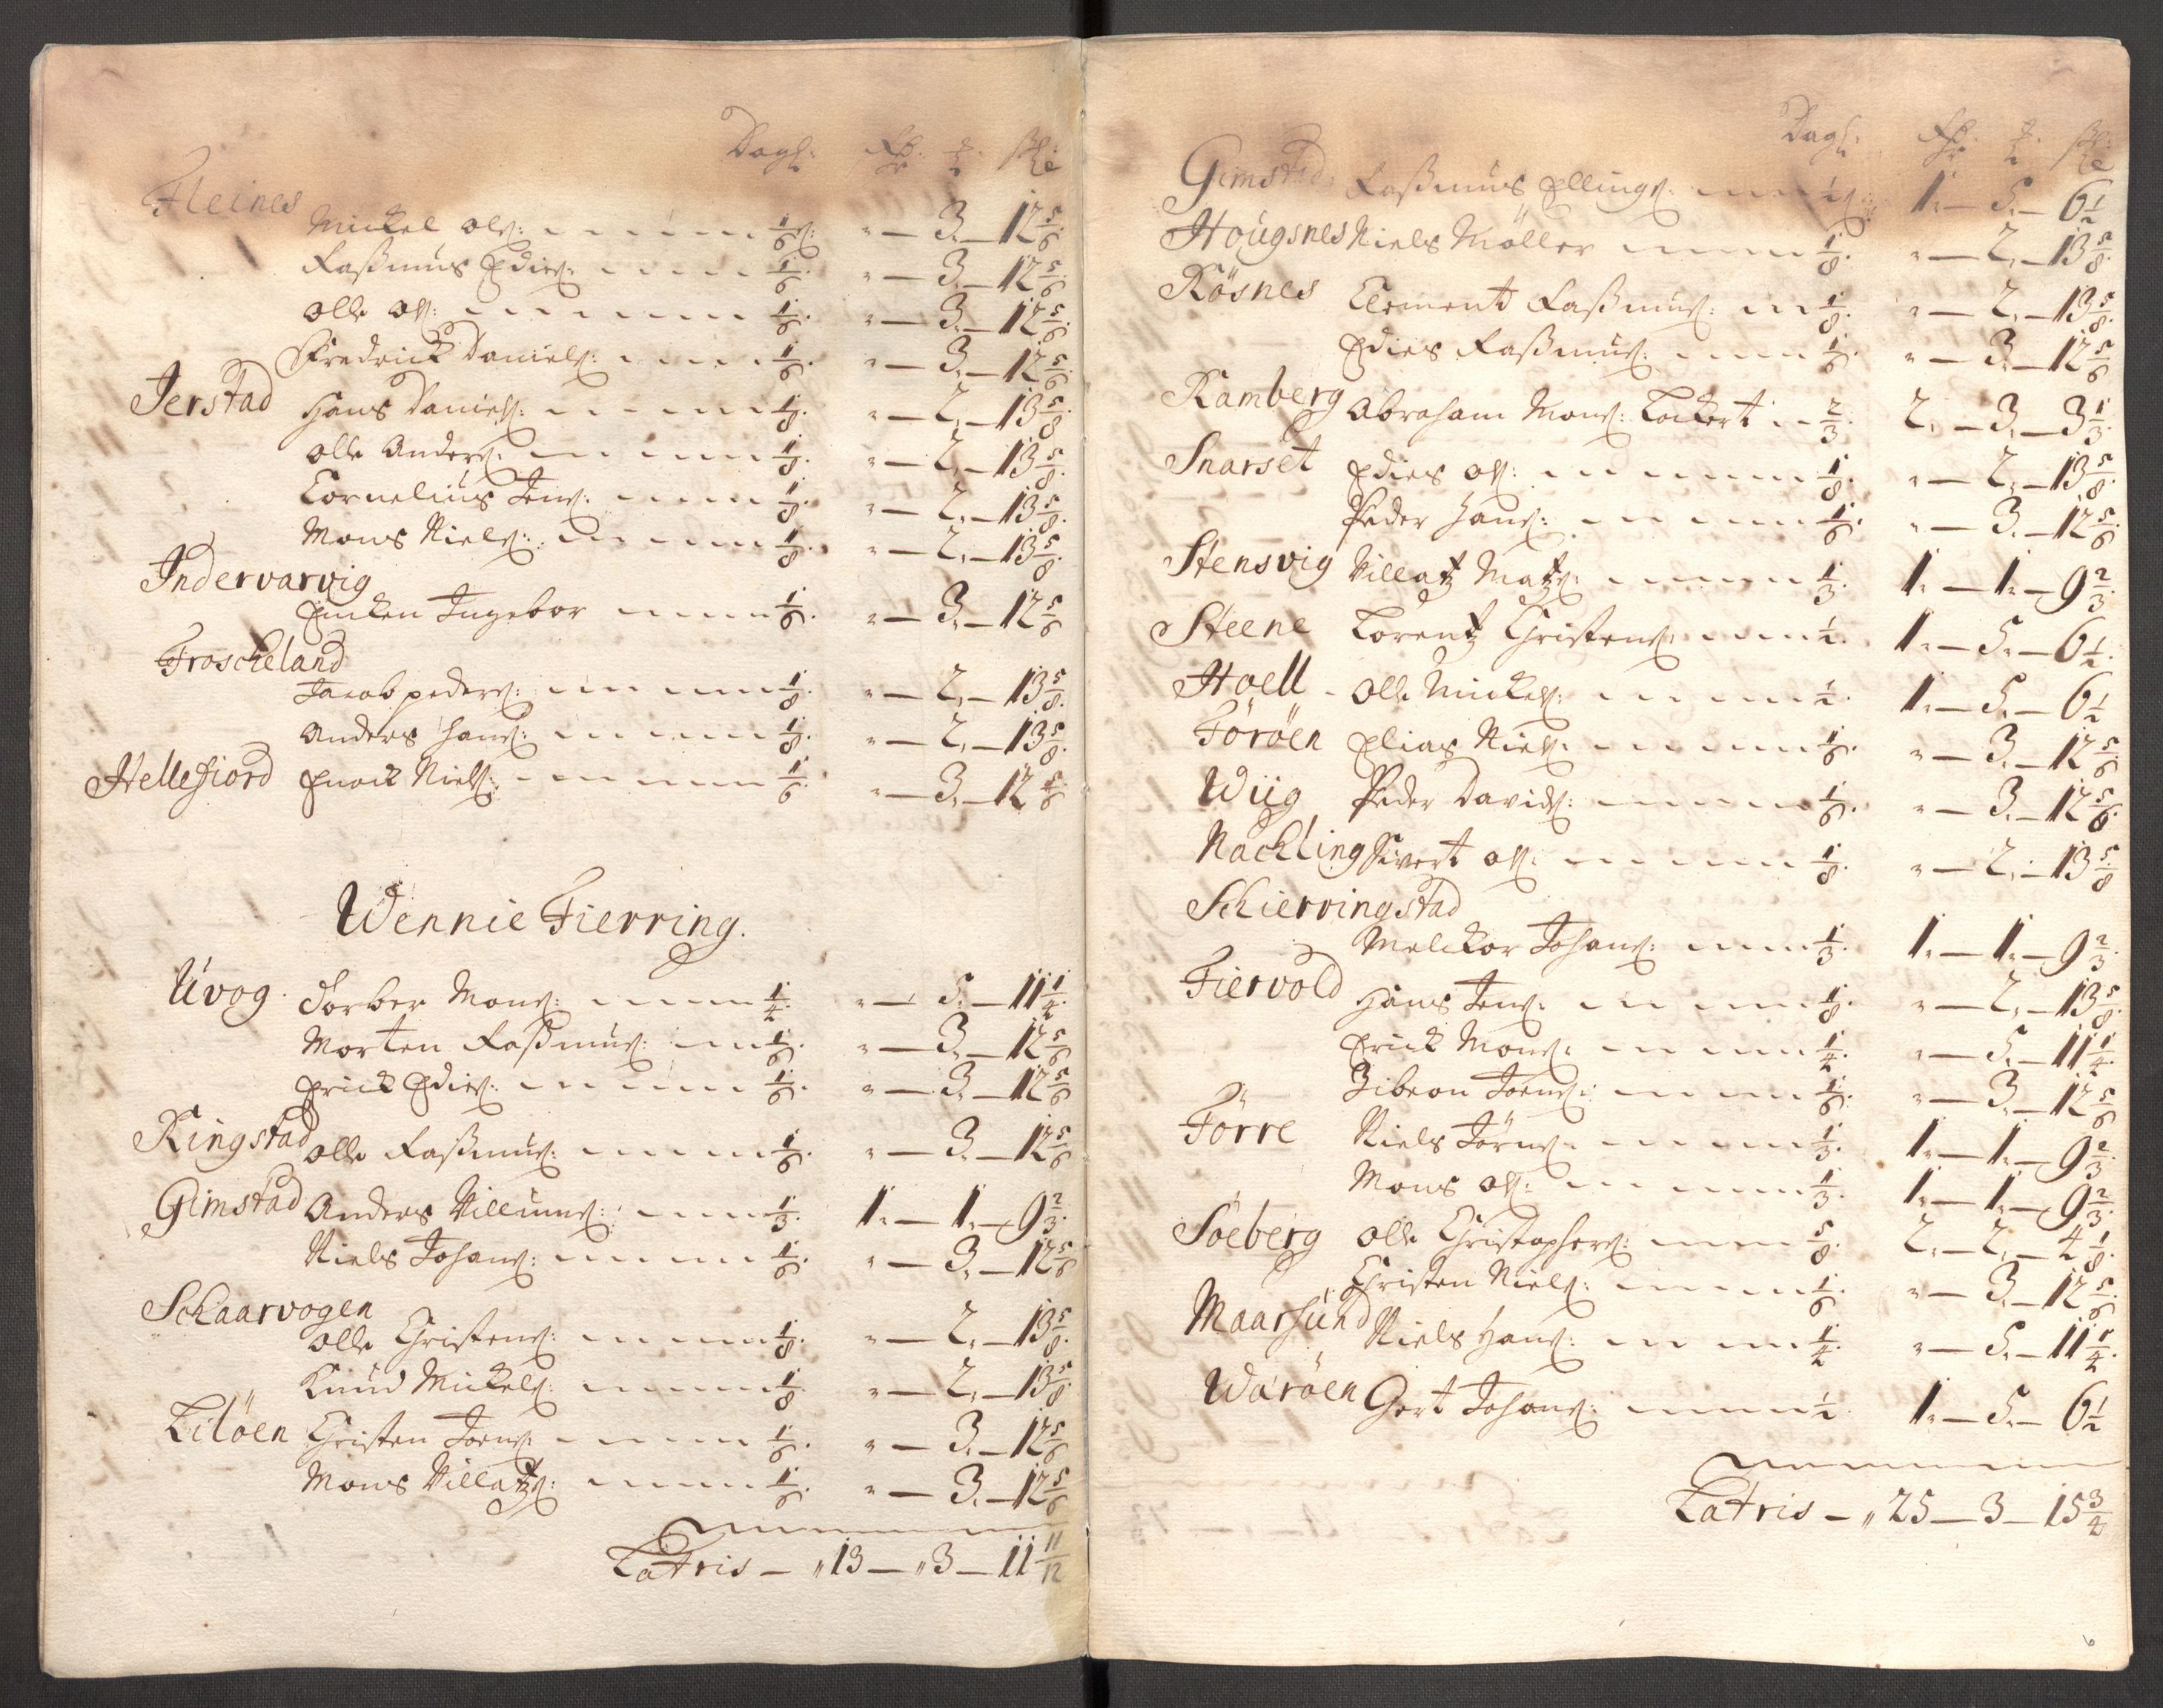 Dagl: Rdr: ₰: ßl:
Fleines
Mickel Ols: 1/6. " — 3. — 12 5/6.
Rasmus Edis: 1/6. " — 3. — 12 5/6.
Olle Ols: 1/6. " — 3. — 12 5/6.
Fredrick Daniels: 1/6. " — 3. — 12 5/6.
Jerstad Hans Daniels: 1/8. " — 2. — 13 5/8.
Olle Anders: 1/8. " — 2. — 13 5/8.
Cornelius Jens: 1/8. " — 2. — 13 5/8.
Mons Niels: 1/8. " — 2. — 13 5/8.
Indervarvig
Encken Ingebor 1/6. " — 3. — 12 5/6
Froscheland
Jacob peders: 1/8. " — 2. — 13 5/8.
Anders Hans: 1/8. " — 2. — 13 5/8.
Hellefiord Enock Niels: 1/6. " — 3. — 12 5/6
Wennie Fierring.
Uvog. Torber Mons: 1/4. " — 5. — 11 1/4.
Morten Rasmus: 1/6. " — 3. — 12 5/6
Erick Edis: 1/6. " — 3. — 12 5/6
Ringstad Olle Rasmus: 1/6. " — 3. — 12 5/6
Gimstad Anders Villums: 1/3. 1. — 1. — 9 2/3.
Niels Johans: 1/6. " — 3. — 12 5/6
Schaarvogen
Olle Christens: 1/8. " — 2. — 13 5/8.
Knud Mickels: 1/8 " — 2. — 13 5/8
Liløen Christen Joens: 1/6. " — 3. — 12 5/6
Mons Villatzs: 1/6. " — 3. — 12 5/6
Latris — " 13 — " 3 — 11 11/12
Dagl: Rdr: ₰: ßl:
Gimstad: Rasmus Ellings: 1/2. 1. — 5. — 6 1/2
Hougsnes Niels Møller 1/8. " — 2. — 13 5/8.
Røsnes Clement Rasmus: 1/8. " — 2. — 13 5/8.
Edies Rasmus: 1/6. " — 3. — 12 5/6
Ramberg Abraham Mons: Lockert 2/3. 2. — 3. — 3 1/3.
Snarset Edies Ols: 1/8. " — 2. — 13 5/8.
Peder Hans: 1/6. " — 3. — 12 5/6.
Stensvig Villatz Matzs: 1/3. 1. — 1. — 9 2/3.
Steene Lorentz Christens: 1/2. 1. — 5. — 6 1/2.
Hoell Olle Mickels: 1/2. 1. — 5. — 6 1/2
Førøen Elias Niels: 1/6. " — 3. — 12 5/6.
Wiig Peder Davids: 1/6. " — 3. — 12 5/6.
Nackling Sivert Ols: 1/8. " — 2. — 13 5/8
Schiervingstad
Melckor Johans: 1/3. 1. — 1. — 9 2/3.
Fiervold Hans Jens: 1/8. " — 2. — 13 5/8.
Erick Mons: 1/4. " — 5. — 11 1/4
Zibeon Joens: 1/6. " — 3. — 12 5/6
Førre Niels Jørns: 1/3. 1. — 1. — 9 2/3.
Mons Ols: 1/3. 1. — 1. — 9 2/3.
Søeberg Olle Christophers: 5/8. 2. — 2. — 4 1/8.
Christen Niels: 1/6 " — 3. — 12 5/6.
Maarsund Niels Hans: 1/4. " — 5. — 11 1/4.
Warøen Gert Johans: 1/2 1. — 5. — 6 1/2
Latris — " 25 — 3 — 15 3/4
6